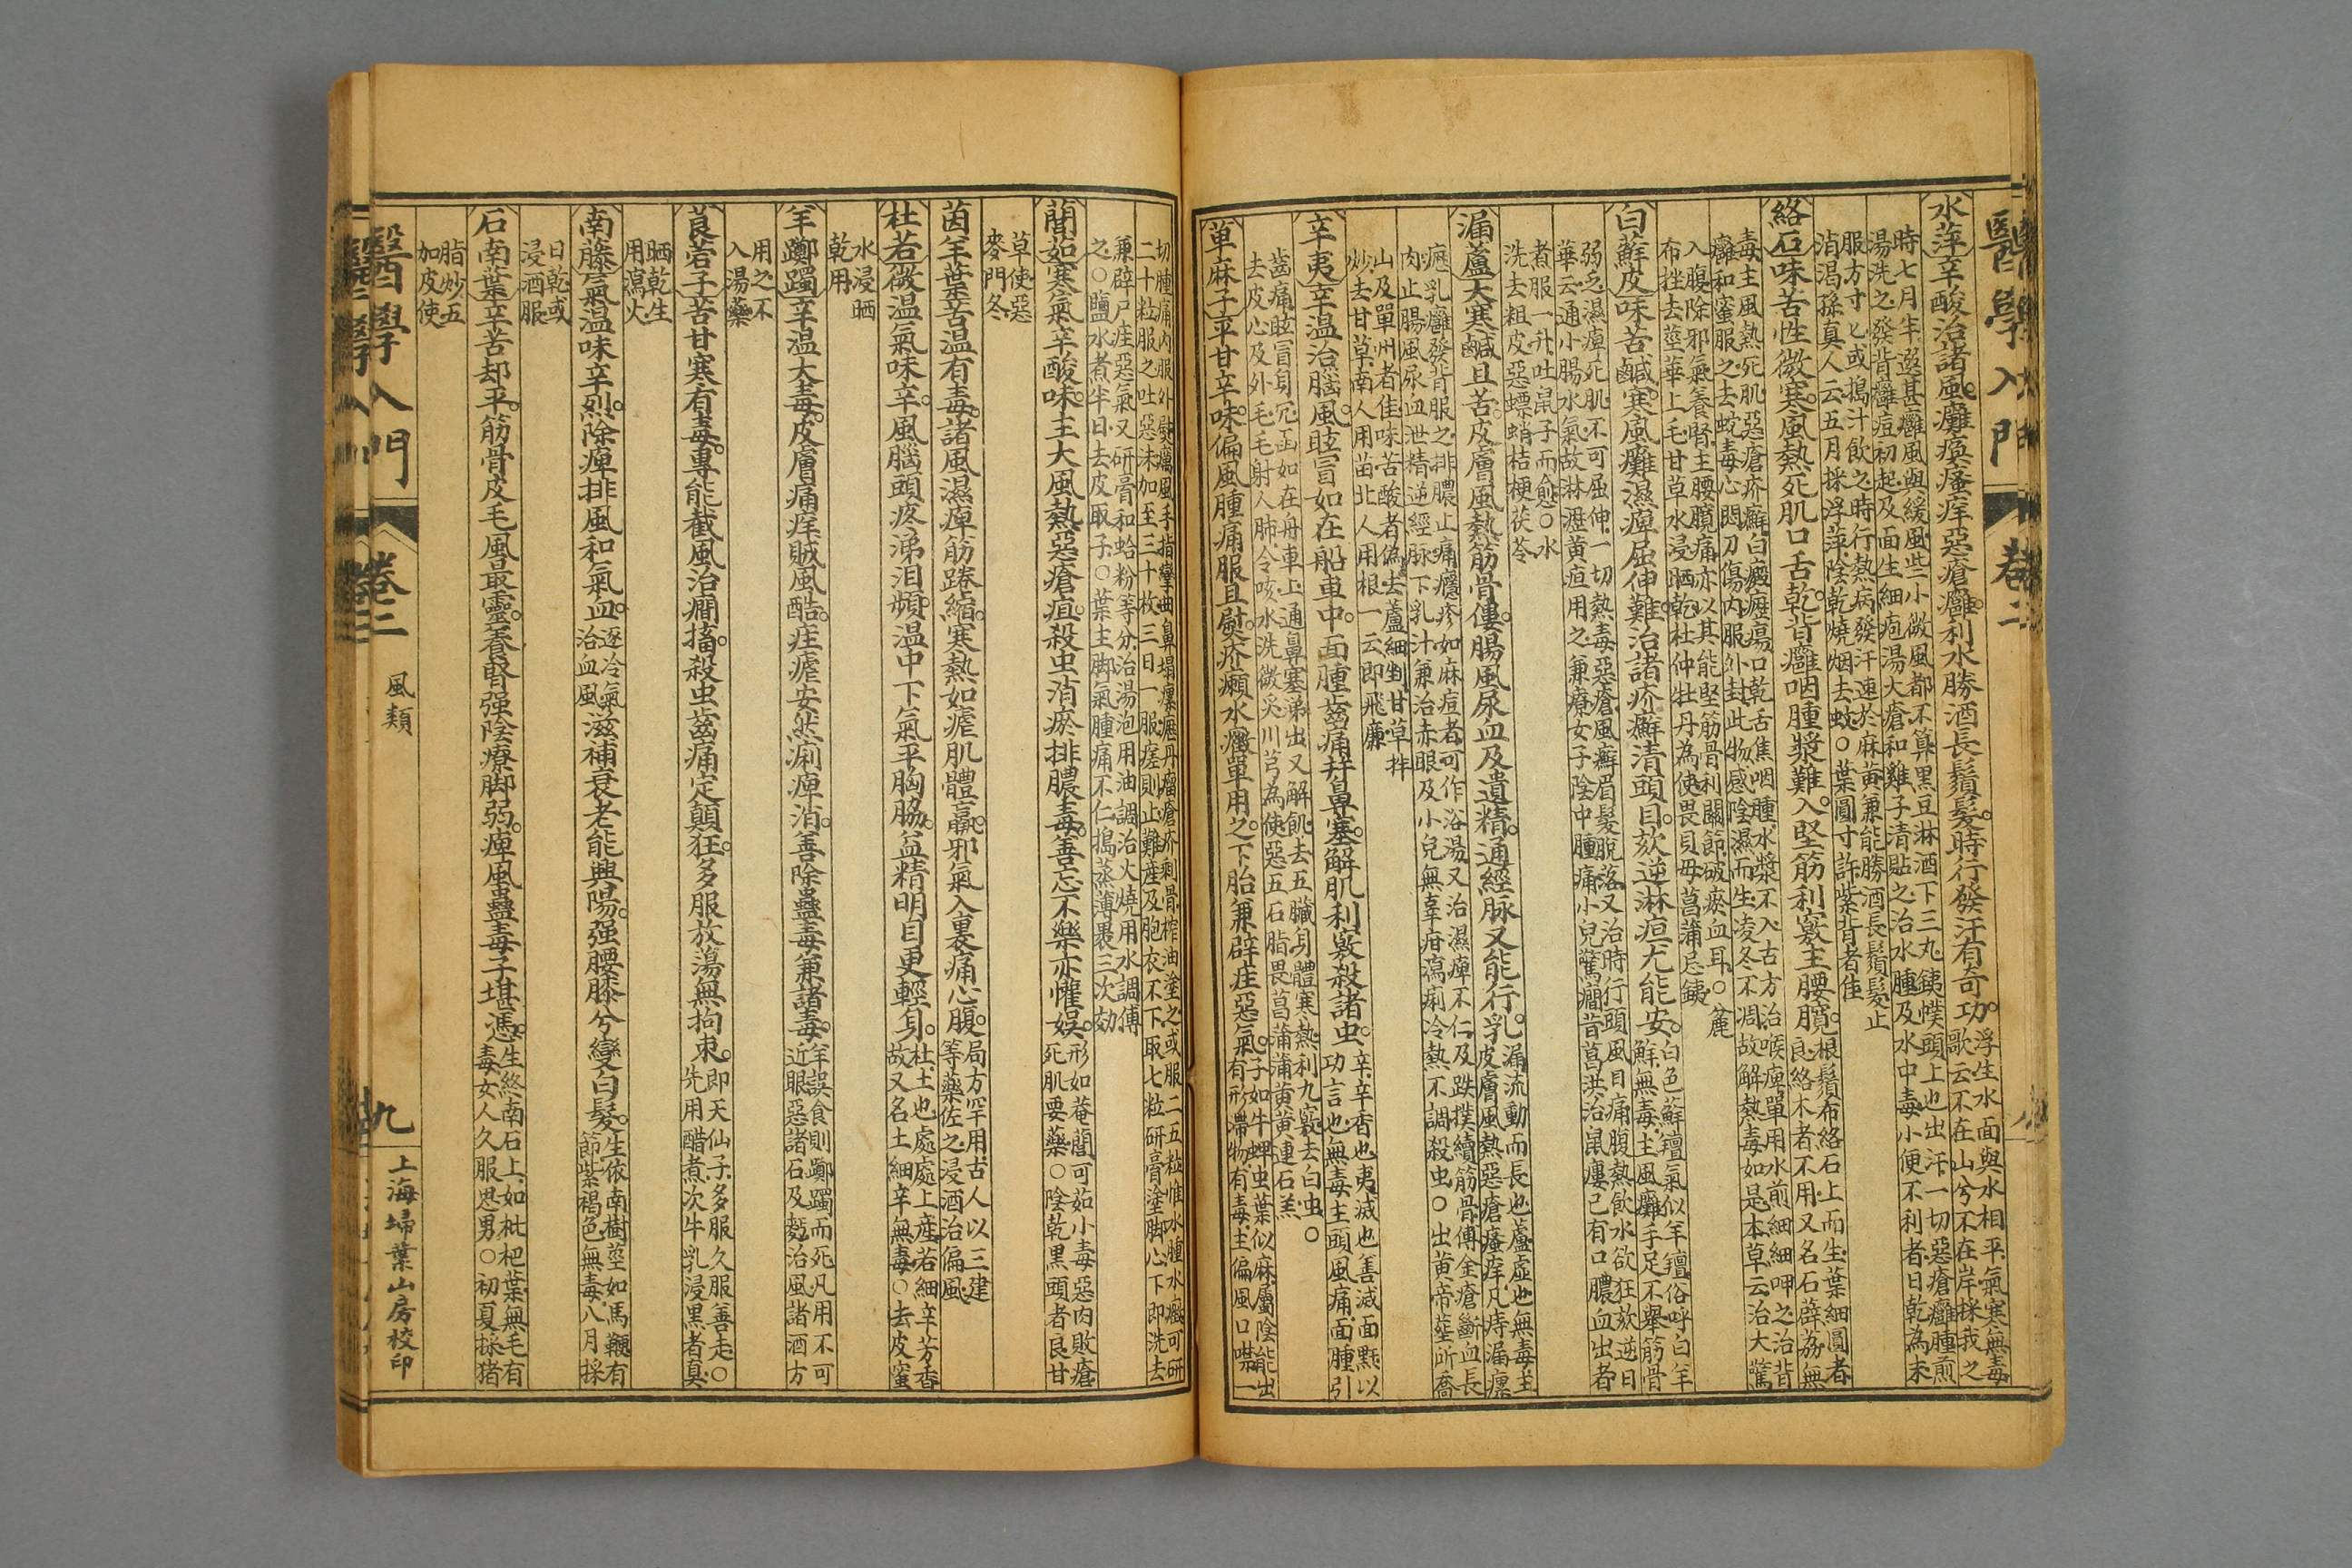 醫學入門
卷二
八
水萍辛酸治諸風癱瘓瘙痒惡瘡癰利水勝酒長鬚髮時行發汗有奇功
浮生水面與水相平氣寒無毒
歌云不在山兮不在岸採我之
時七月半選甚癱風與緩風些小微風都不算黑豆淋酒下三丸鐵幞頭上也出汗一切惡瘡癰腫煎
湯洗之發背癰疽初起及面生細疱湯火瘡和雞子清貼之治水腫及水中毒小便不利者日乾為末
服方寸匕或搗汁飲之時行熱病發汗速於麻黃兼能勝酒長鬚髮止
消渴孫真人云五月採浮萍陰乾燒烟去蚊○葉圓寸許紫背者佳
絡石味苦性微寒風熱死肌口舌乾背癰咽腫漿難入堅筋利竅主腰髖
根鬚布絡石上而生葉細圓者
良絡木者不用又名石薜荔無
毒主風熱死肌惡瘡疥癬白癜癧瘍口乾舌焦咽腫水漿不入古方治喉痺單用水煎細細呷之治背
癰和蜜服之去蛟毒心悶刀傷內服外封此物感陰濕而生凌冬不凋故解熱毒如是本草云治大驚
入腹除邪氣養腎主腰髖痛亦以其能堅筋骨利關節破瘀血耳○麄
布挫去莖華上毛甘草水浸晒乾杜仲牡丹為使畏貝毋菖蒲忌鐵
白蘚皮味苦鹹寒風癱濕痺屈伸難治諸疥癬清頭目欬逆淋疸尤能安
白色蘚羶氣似羊羶俗呼白羊
鮮無毒主風癱手足不舉筋骨
弱乏濕痺死肌不可屈伸一切熱毒惡瘡風癬眉髮脫落又治時行頭風目痛腹熱飲水欲狂欬逆日
華云通小腸水氣故淋瀝黃疸用之兼療女子陰中腫痛小兒驚癇昔葛洪治鼠瘻已有口膿血出者
煮服一升吐鼠子而愈○水
洗去粗皮惡螵蛸桔梗茯苓
漏蘆大寒鹹且苦皮膚風熱筋骨僂腸風尿血及遺精通經脉又能行乳
漏流動而長也蘆虛也無毒主
皮膚風熱惡瘡瘙痒凡痔漏瘰
癧乳癰發背服之排膿止痛癮疹如麻痘者可作浴湯又治濕痺不仁及跌撲續筋骨傅金瘡斷血長
肉止腸風尿血泄精逆經脉下乳汁兼治赤眼及小兒無辜疳瀉痢冷熱不調殺虫○出黄帝莖所喬
山及單州者佳味苦酸者偽去蘆細剉甘草拌
炒去甘草南人用苗北人用根一云即飛廉
辛夷辛温治腦風眩冒如在船車中面腫齒痛并鼻塞解肌利竅殺諸虫
辛辛香也夷滅也善滅面䵟以
功言也無毒主頭風痛面腫引
齒痛眩冒身冗冗如在舟車上通鼻塞涕出又解飢去五臟身體寒熱利九竅去白虫○
去皮心及外毛毛射人肺令咳水洗微炙川芎為使惡五石脂畏菖蒲蒲黃黃連石羔
萆麻子辛甘辛味偏風腫痛服且熨疥癩水癥單用之下胎兼辟疰惡氣
子如牛蜱虫葉似麻屬陰能出
有形滯物有毒主偏風口喎一
切腫痛內服外熨癘風手指攣曲鼻塌瘰癧丹瘤瘡疥剩骨榨油塗之或服二五粒惟水腫水癥可研
二十粒服之吐惡沫加至三十枚三日一服瘥則止難産及胞衣不下取七粒研膏塗脚心下即洗去
兼辟尸疰惡氣又研膏和蛤粉等分治湯泡用油調治火燒用水調傅
之○鹽水煮半日去皮取子○葉主脚氣腫痛不仁搗蒸薄裹三次効
䕡茹寒氣辛酸味主大風熱惡瘡疽殺虫消瘀排膿毒善忘不樂亦懽娛
形如菴䕡可茹小毒惡肉敗瘡
死肌要藥○陰乾黑頭者良甘
草使惡
麥門冬
茵芋葉苦温有毒諸風濕痺筋踡縮寒熱如瘧肌體羸邪氣入裏痛心腹
局方罕用古人以三建
等藥佐之浸酒治偏風
杜若微温氣味辛風腦頭疼涕泪頻温中下氣平胸脇益精明目更輕身
杜土也處處土産若細辛芳香
故又名土細辛無毒○去皮蜜
水浸晒
乾用
羊躑躅辛温大毒皮膚痛痒賊風酷疰瘧安然痢痺消善除蠱毒兼諸毒
羊誤食則躑躅而死凡用不可
近眼惡諸石及麪治風諸酒方
用之不
入湯藥
莨菪子苦甘寒有毒專能截風治癇搐殺虫齒痛定顛狂多服放蕩無拘束
即天仙子多服久服善走○
先用醋煮次牛乳浸黑者真
晒乾生
用瀉火
南籐氣温味辛烈除痺排風和氣血
逐冷氣
治血風
滋補衰老能興陽强腰膝兮變白髮
生依南樹莖如馬鞭有
節紫褐色無毒八月採
日乾或
浸酒服
石南葉辛苦却平筋骨皮毛風最靈養腎强陰療脚弱痺風蠱毒子堪憑
生終南石上如枇杷葉無毛有
毒女人久服思男○初夏採猪
脂炒五
加皮使
醫學入門
卷二
風類
九
上海埽葉山房校印